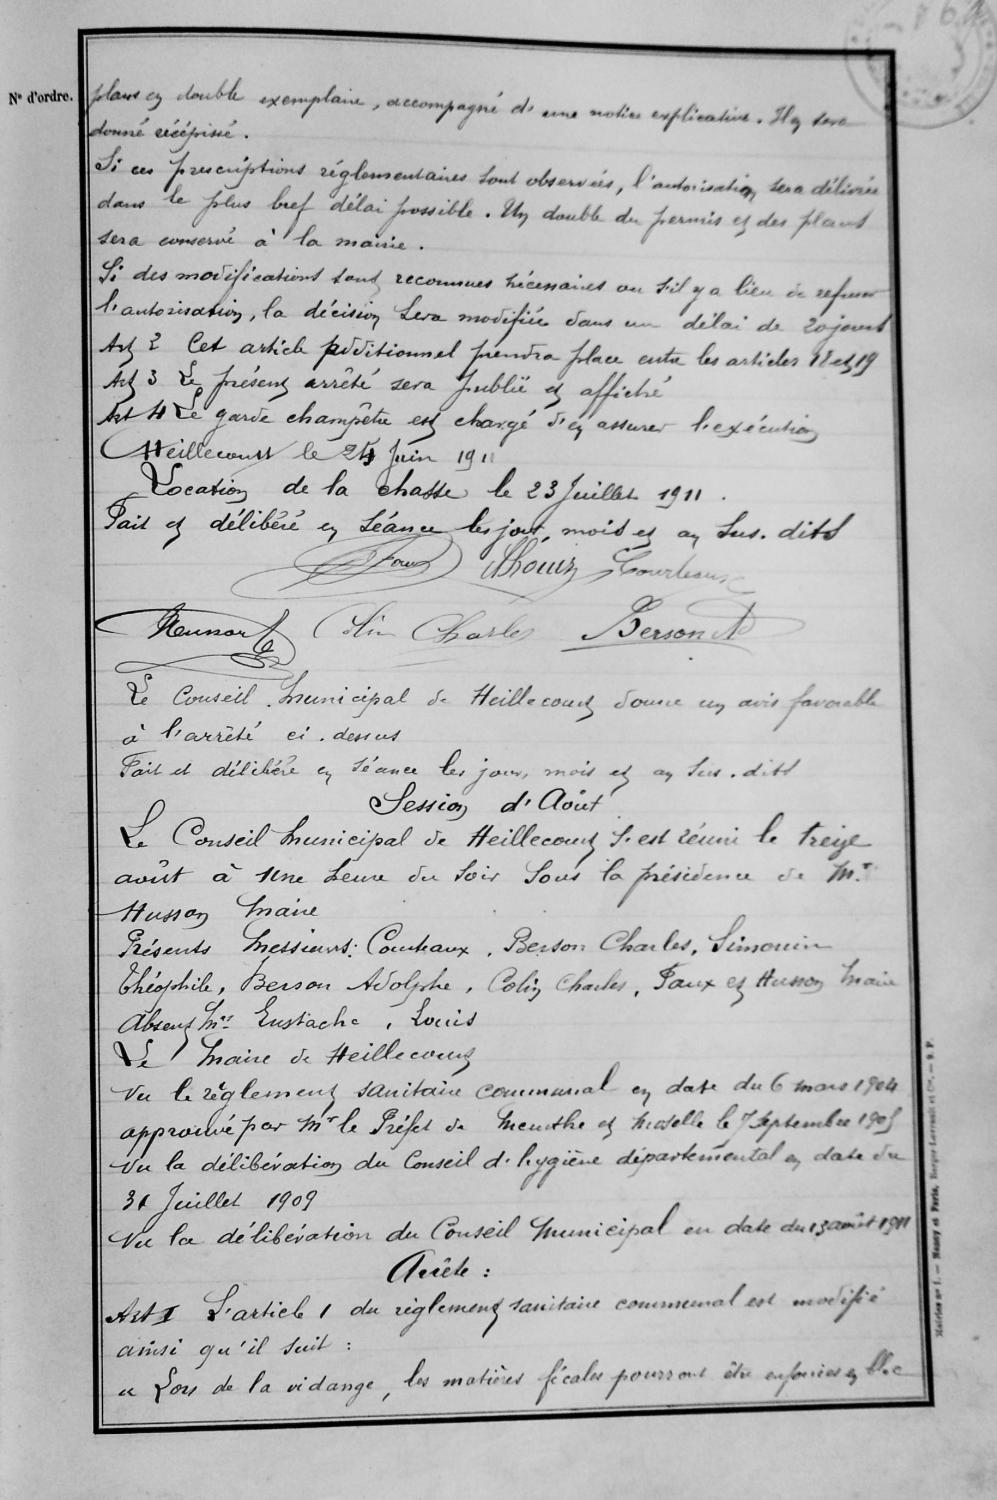 Nº d'ordre.
plans en double exemplaire, accompagné d'une notice explicative. Il en sera
donné récépissé.
Si ces prescriptions réglementaires sont observées, l'autorisation sera délivrée
dans le plus bref délai possible. Un double du permis et des plans
sera conservé à la mairie.
Si des modifications sont reconnues nécessaires ou s'il y a lieu de refuser
l'autorisation, la décision sera modifiée dans un délai de 20 jours
Art 2 Cet article additionnel prendra place entre les articles 18 et 19
Art 3 Le présent arrêté sera publié et affiché
Art 4 Le garde champêtre est chargé d'en assurer l'exécution
Heillecourt le 24 Juin 1911
Location de la chasse le 23 Juillet 1911.
Fait et délibéré en séance les jour, mois et an sus.dits
Colin Charles Berson A
Le Conseil Municipal de Heillecourt donne un avis favorable
à l'arrêté ci.dessus
Fait et délibéré en séance les jour, mois et an sus.dits
Session d'Août
Le Conseil Municipal de Heillecourt s'est réuni le treize
août à une heure du soir sous la présidence de Mr
Husson Maire
Présents Messieurs: Courteaux, Berson Charles, Simonin
Théophile, Berson Adolphe, Colin Charles, Faux et Husson Maire
Absent Mrs Eustache, Louis
Le Maire de Heillecourt
Vu le règlement sanitaire communal en date du 6 mars 1904
approuvé par Mr le Préfet de Meurthe et Moselle le 7 Septembre 1905
Vu la délibération du Conseil d'hygiène départemental en date du
31 Juillet 1909
Vu la délibération du Conseil Municipal en date du 13 août 1911
Arrête :
Art I L'article 1 du règlement sanitaire communal est modifié
ainsi qu'il suit :
« Lors de la vidange, les matières fécales pourront être enfouies en bloc
Mairies nº 1. — Nancy et Paris, Berger-Levrault et Cie. — 9 P.